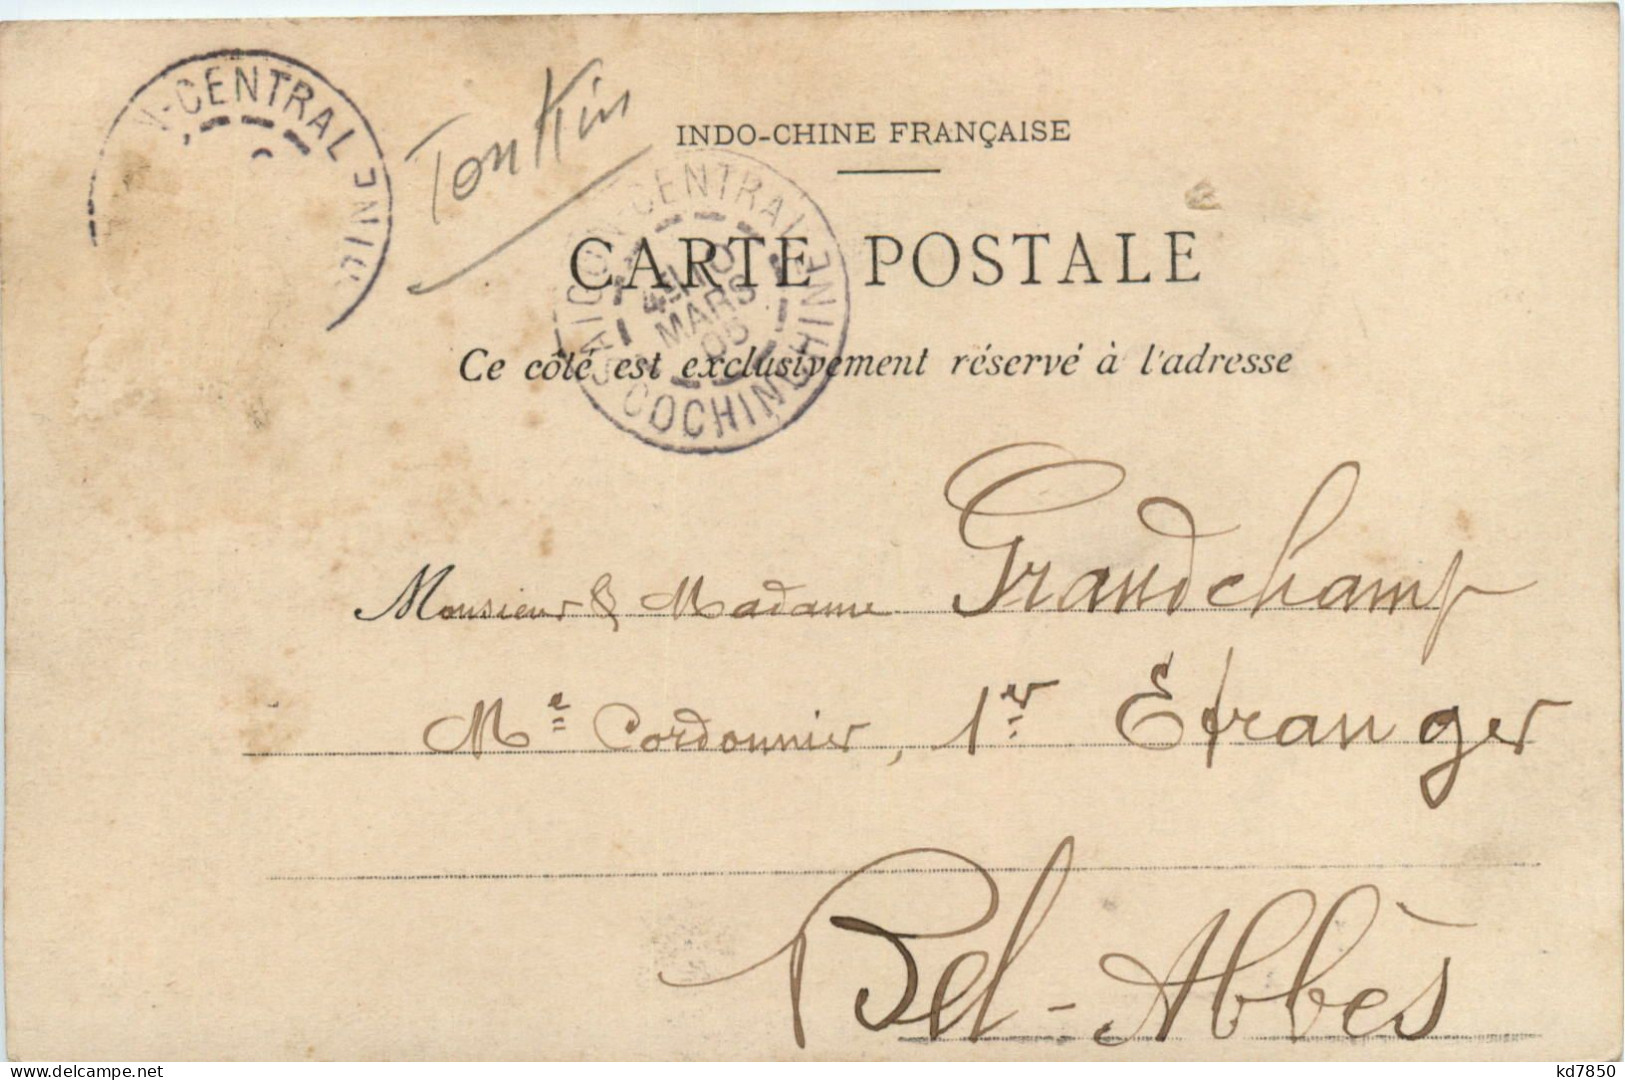 N-CENTRAL
HINE
Tonkin
INDO-CHINE FRANÇAISE
SAIGON-CENTRAL
CARTE POSTALE
MARS
05
COCHINCHINE
Ce côté est exclusivement réservé à l'adresse
Monsieur & Madame Grandchamp
Me Cordonnier, 1er Etranger
Bel-Abbès
kd7850